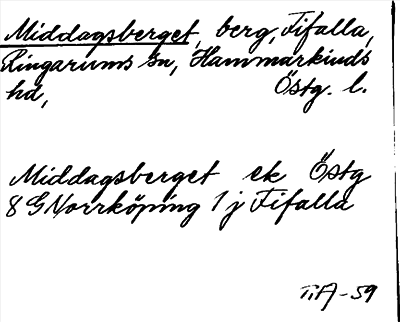 Middagsberget, berg, Fifalla,
Ringarums sn, Hammarkinds
hd, Östg. l.
Middagsberget ek Östg
8 G Norrköping 1 j Fifalla
T.A-59